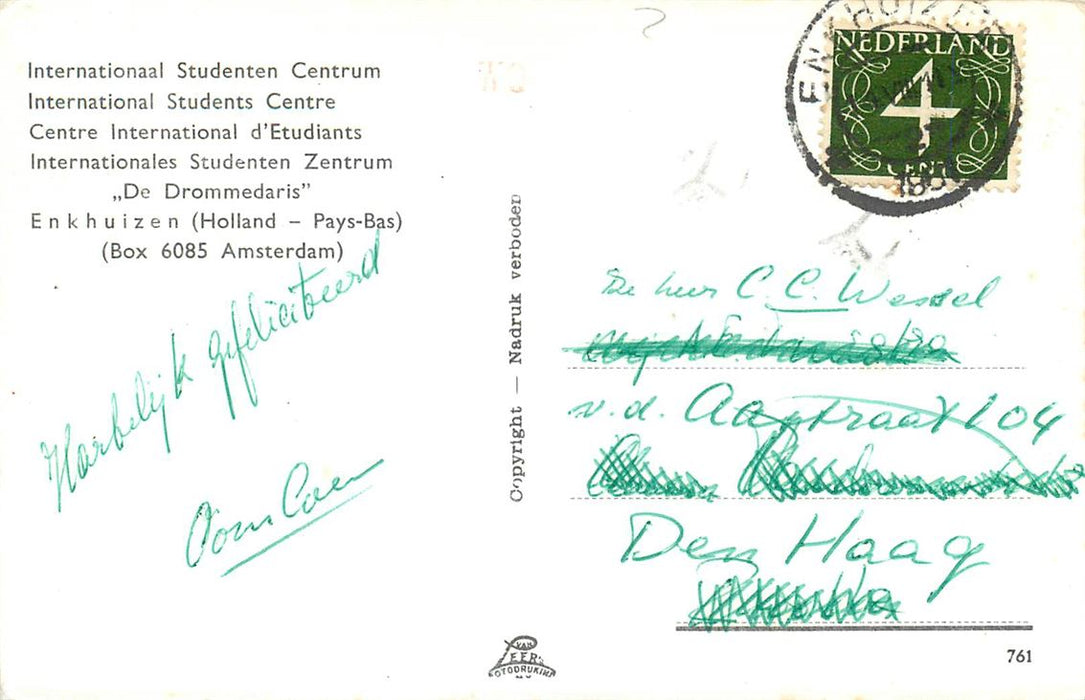 Internationaal Studenten Centrum
International Students Centre
Centre International d'Etudiants
Internationales Studenten Zentrum
„De Drommedaris”
Enkhuizen (Holland – Pays-Bas)
(Box 6085 Amsterdam)
Hartelijk gefeliciteerd
Oom Coen
Copyright — Nadruk verboden
NEDERLAND
4
CENT
ENKHUIZEN
De heer C. C. Wessel
v.d. Aastraat 104
Den Haag
VAN LEER'S
FOTODRUKIND
761